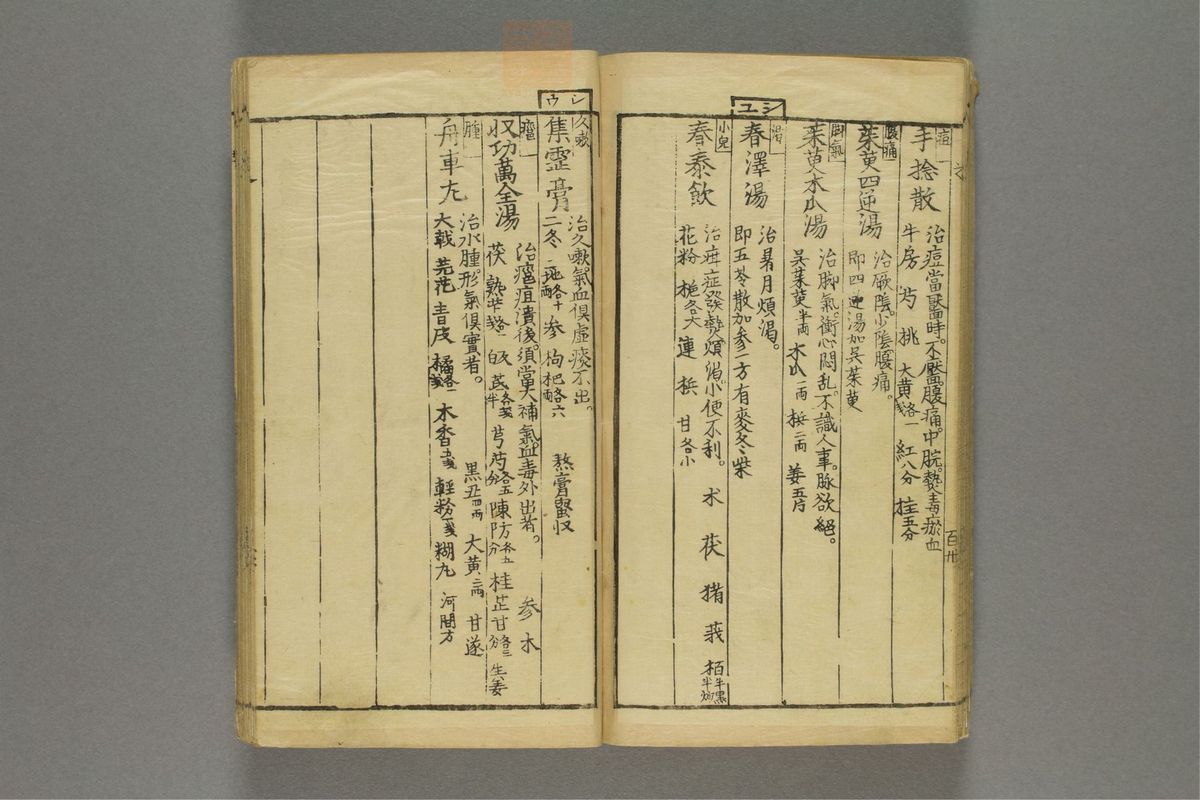 手捻散
治痘當靨時。不靨腹痛。中脘。熱毒瘀血
牛房 芍 桃 大黄各一戔 紅八分 桂五分
腹痛
茱萸四逆湯
治厥陰。少陰腹痛。
即四逆湯加呉茱萸
脚氣
茱萸木瓜湯
治脚氣。衝心悶乱。不識人事。脉欲絕。
呉茱萸半両 木瓜一両 梹二両 姜五片
シユ
渇
春澤湯
治暑月煩渇。
即五苓散加参一方有麥冬柴
小兒
春泰飲
治疳症發熱煩渇。小便不利。
花粉 梔各大 連 梹 甘各小
朮 茯 猪 莪 栢
百卅
シウ
久嗽
集霊膏
治久嗽。氣血倶虚痰不出。
二冬 二地各十両 参 枸杞各六両
熬膏蜜収
癰
収功萬全湯
治癰疽潰後。須當大補氣血毒外出者。
参 木
茯 熟芐 白 芪 芎 芍各五分 陳 防各五分 桂 芷 甘各三分 生姜
腫
舟車丸
治水腫。形氣倶實者。
黒丑四両 大黄二両 甘遂
大戟 芫花 青皮 橘各一戔 木香五戔 輕粉一戔 糊丸 河間方